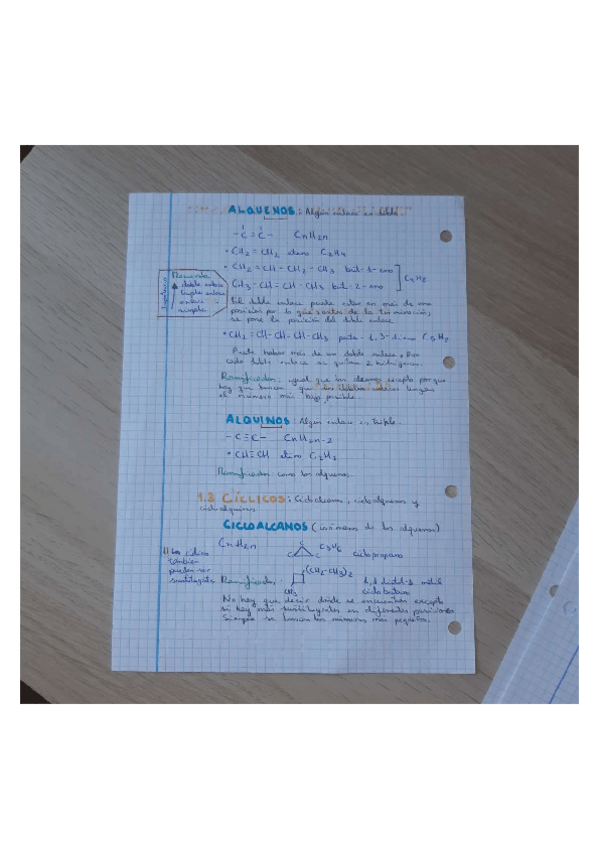 ALQUENOS: Algún enlace es doble
-C=C- CnH2n
• CH2=CH2 eteno C2H4
• CH2=CH-CH2-CH3 but-1-eno
CH3-CH=CH-CH3 but-2-eno
Importancia
Recuerda
doble enlace
triple enlace
enlace
simple
El doble enlace puede estar en más de una
posición por lo que antes de la terminación,
se pone la posición del doble enlace
Puede haber más de un doble enlace. Por
cada doble enlace se quitan 2 hidrógenos.
Ramificados: igual que los alcanos excepto porque
hay que buscar que los dobles enlaces tengan
el número más bajo posible.
ALQUINOS: Algún enlace es triple
-C≡C- CnH2n-2
• CH≡CH etino C2H2
Ramificados como los alquenos
1.2 CÍCLICOS: Cicloalcanos, cicloalquenos y
cicloalquinos
CICLOALCANOS (isómeros de los alquenos)
CnH2n
C C C C3H6 ciclopropano
Los ciclos
también
pueden ser
sustituyentes
Ramificados:
(CH2-CH3)2
CH3
ciclobutano
No hay que decir donde se encuentra excepto
si hay más sustituyentes en diferentes posiciones
Siempre se buscan los números más pequeños.